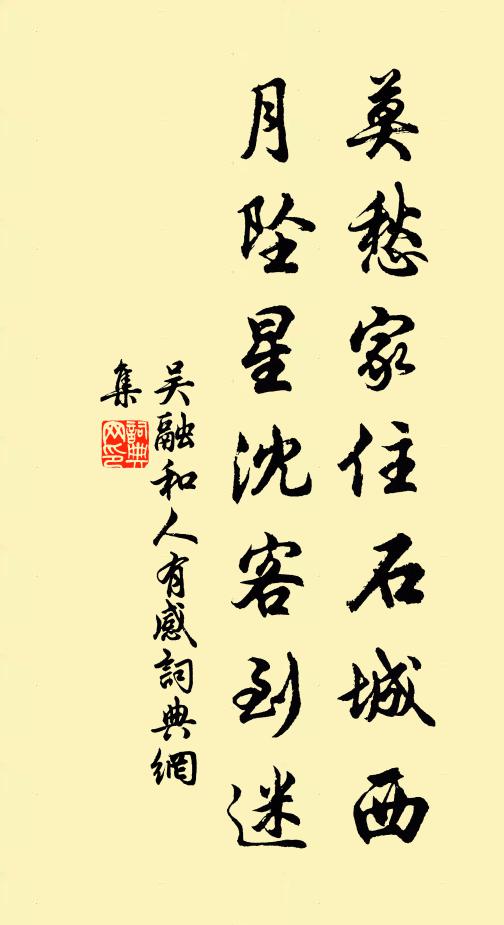 莫愁家住石城西
月坠星沈客到迷
吴融和人有感詞典網
集
詞典
网印